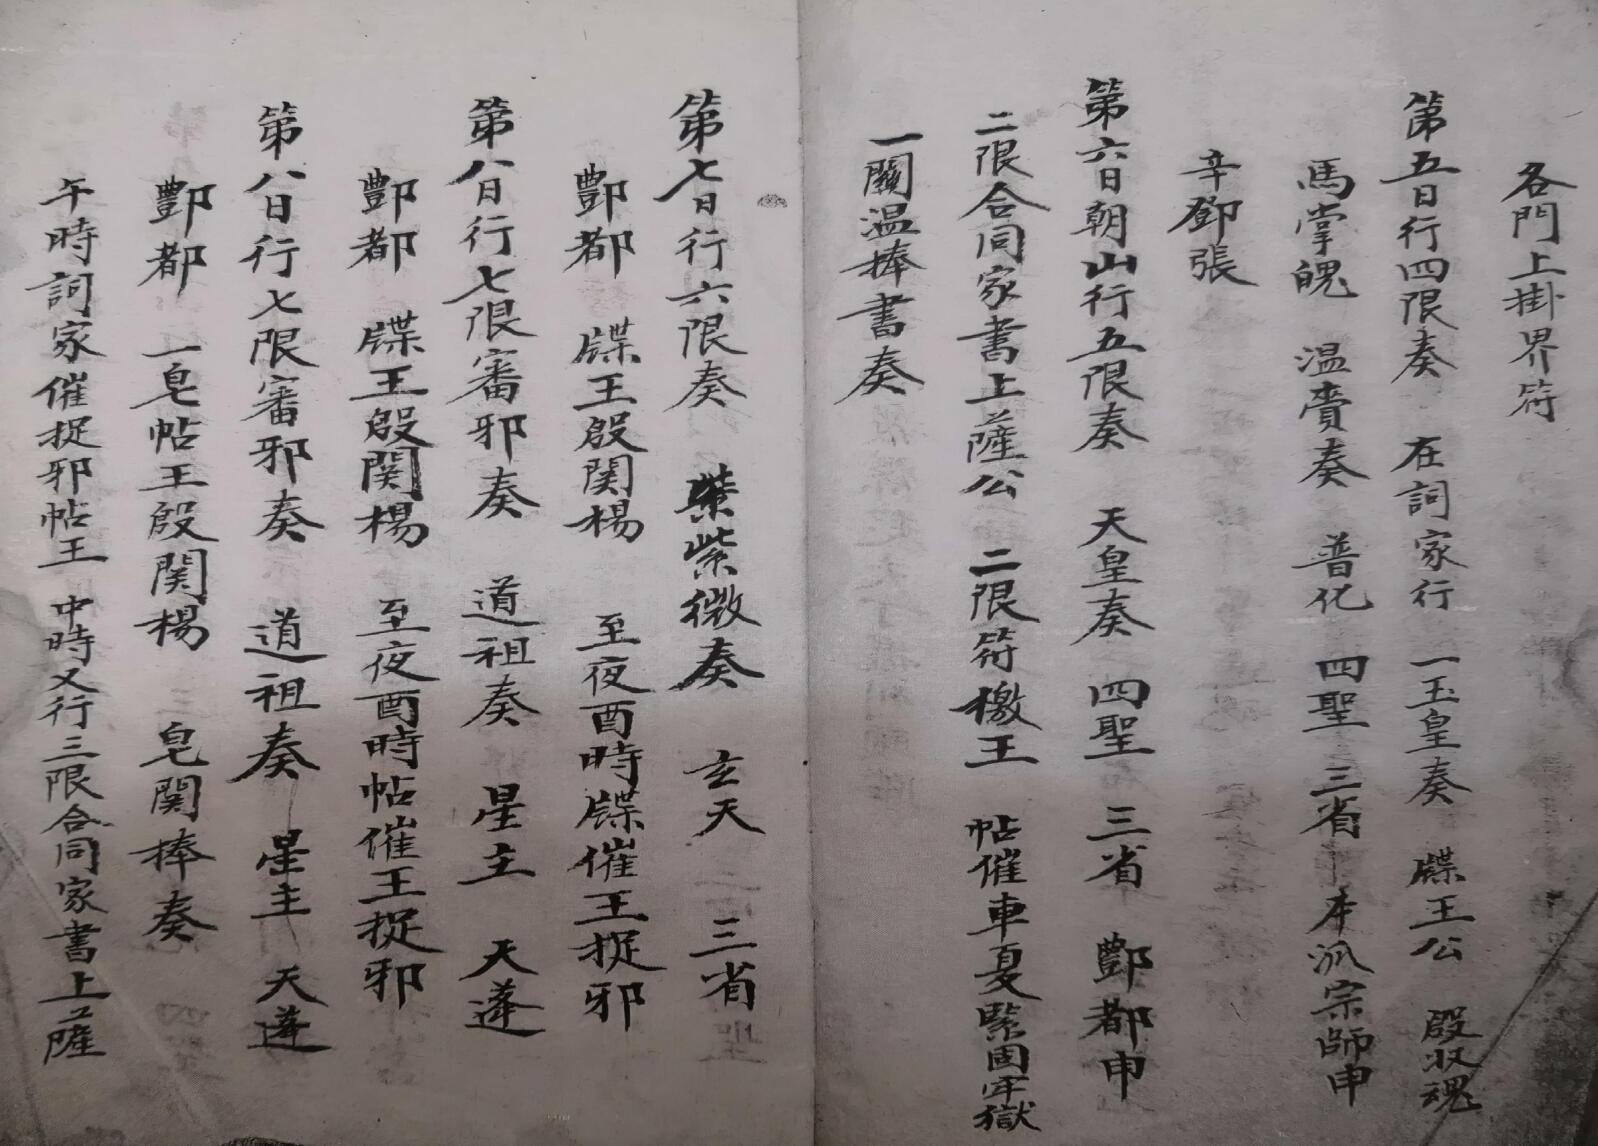 各門上掛界符
第五日行四限奏 在詞家行 一玉皇奏 牒王公 殷収魂
馬掌魄 温賷奏 普化 四聖 三省 本派宗師申
辛鄧張
第六日朝山行五限奏 天皇奏 四聖 三省 酆都申
二限合同家書上薩公 二限符檄王 帖催車夏緊固牢獄
一關温捧書奏
第七日行六限奏 紫紫微奏 玄天 三省
酆都 牒王殷関楊 至夜酉時牒催王捉邪
第八日行七限審邪奏 道祖奏 星主 天蓬
酆都 牒王殷関楊 至夜酉時帖催王捉邪
第八日行七限審邪奏 道祖奏 星主 天蓬
酆都 一皂帖王殷関楊 皂関捧奏
午時詞家催捉邪帖王 中時又行三限合同家書上薩